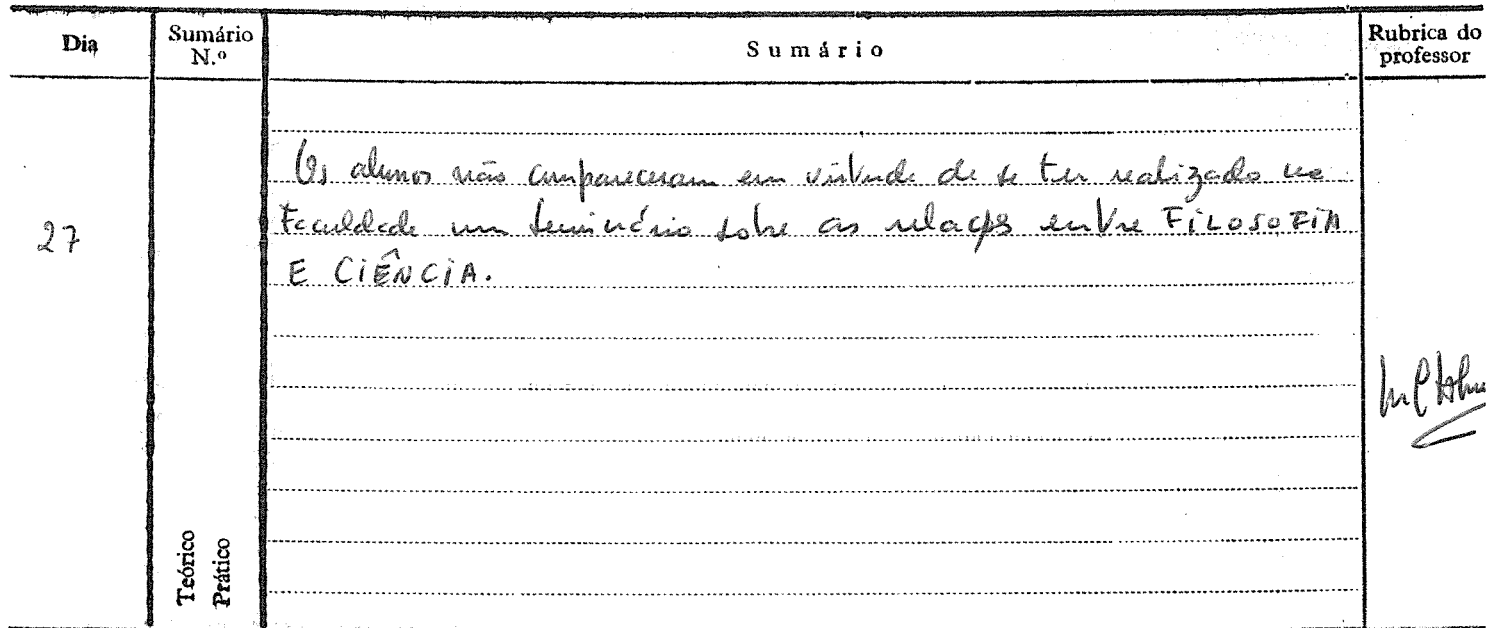 Dia
Sumário N.º
Sumário
Rubrica do professor
27
Os alunos não compareceram em virtude de se ter realizado na
Faculdade um seminário sobre as relações entre FILOSOFIA
E CIÊNCIA.
Teórico
Prático